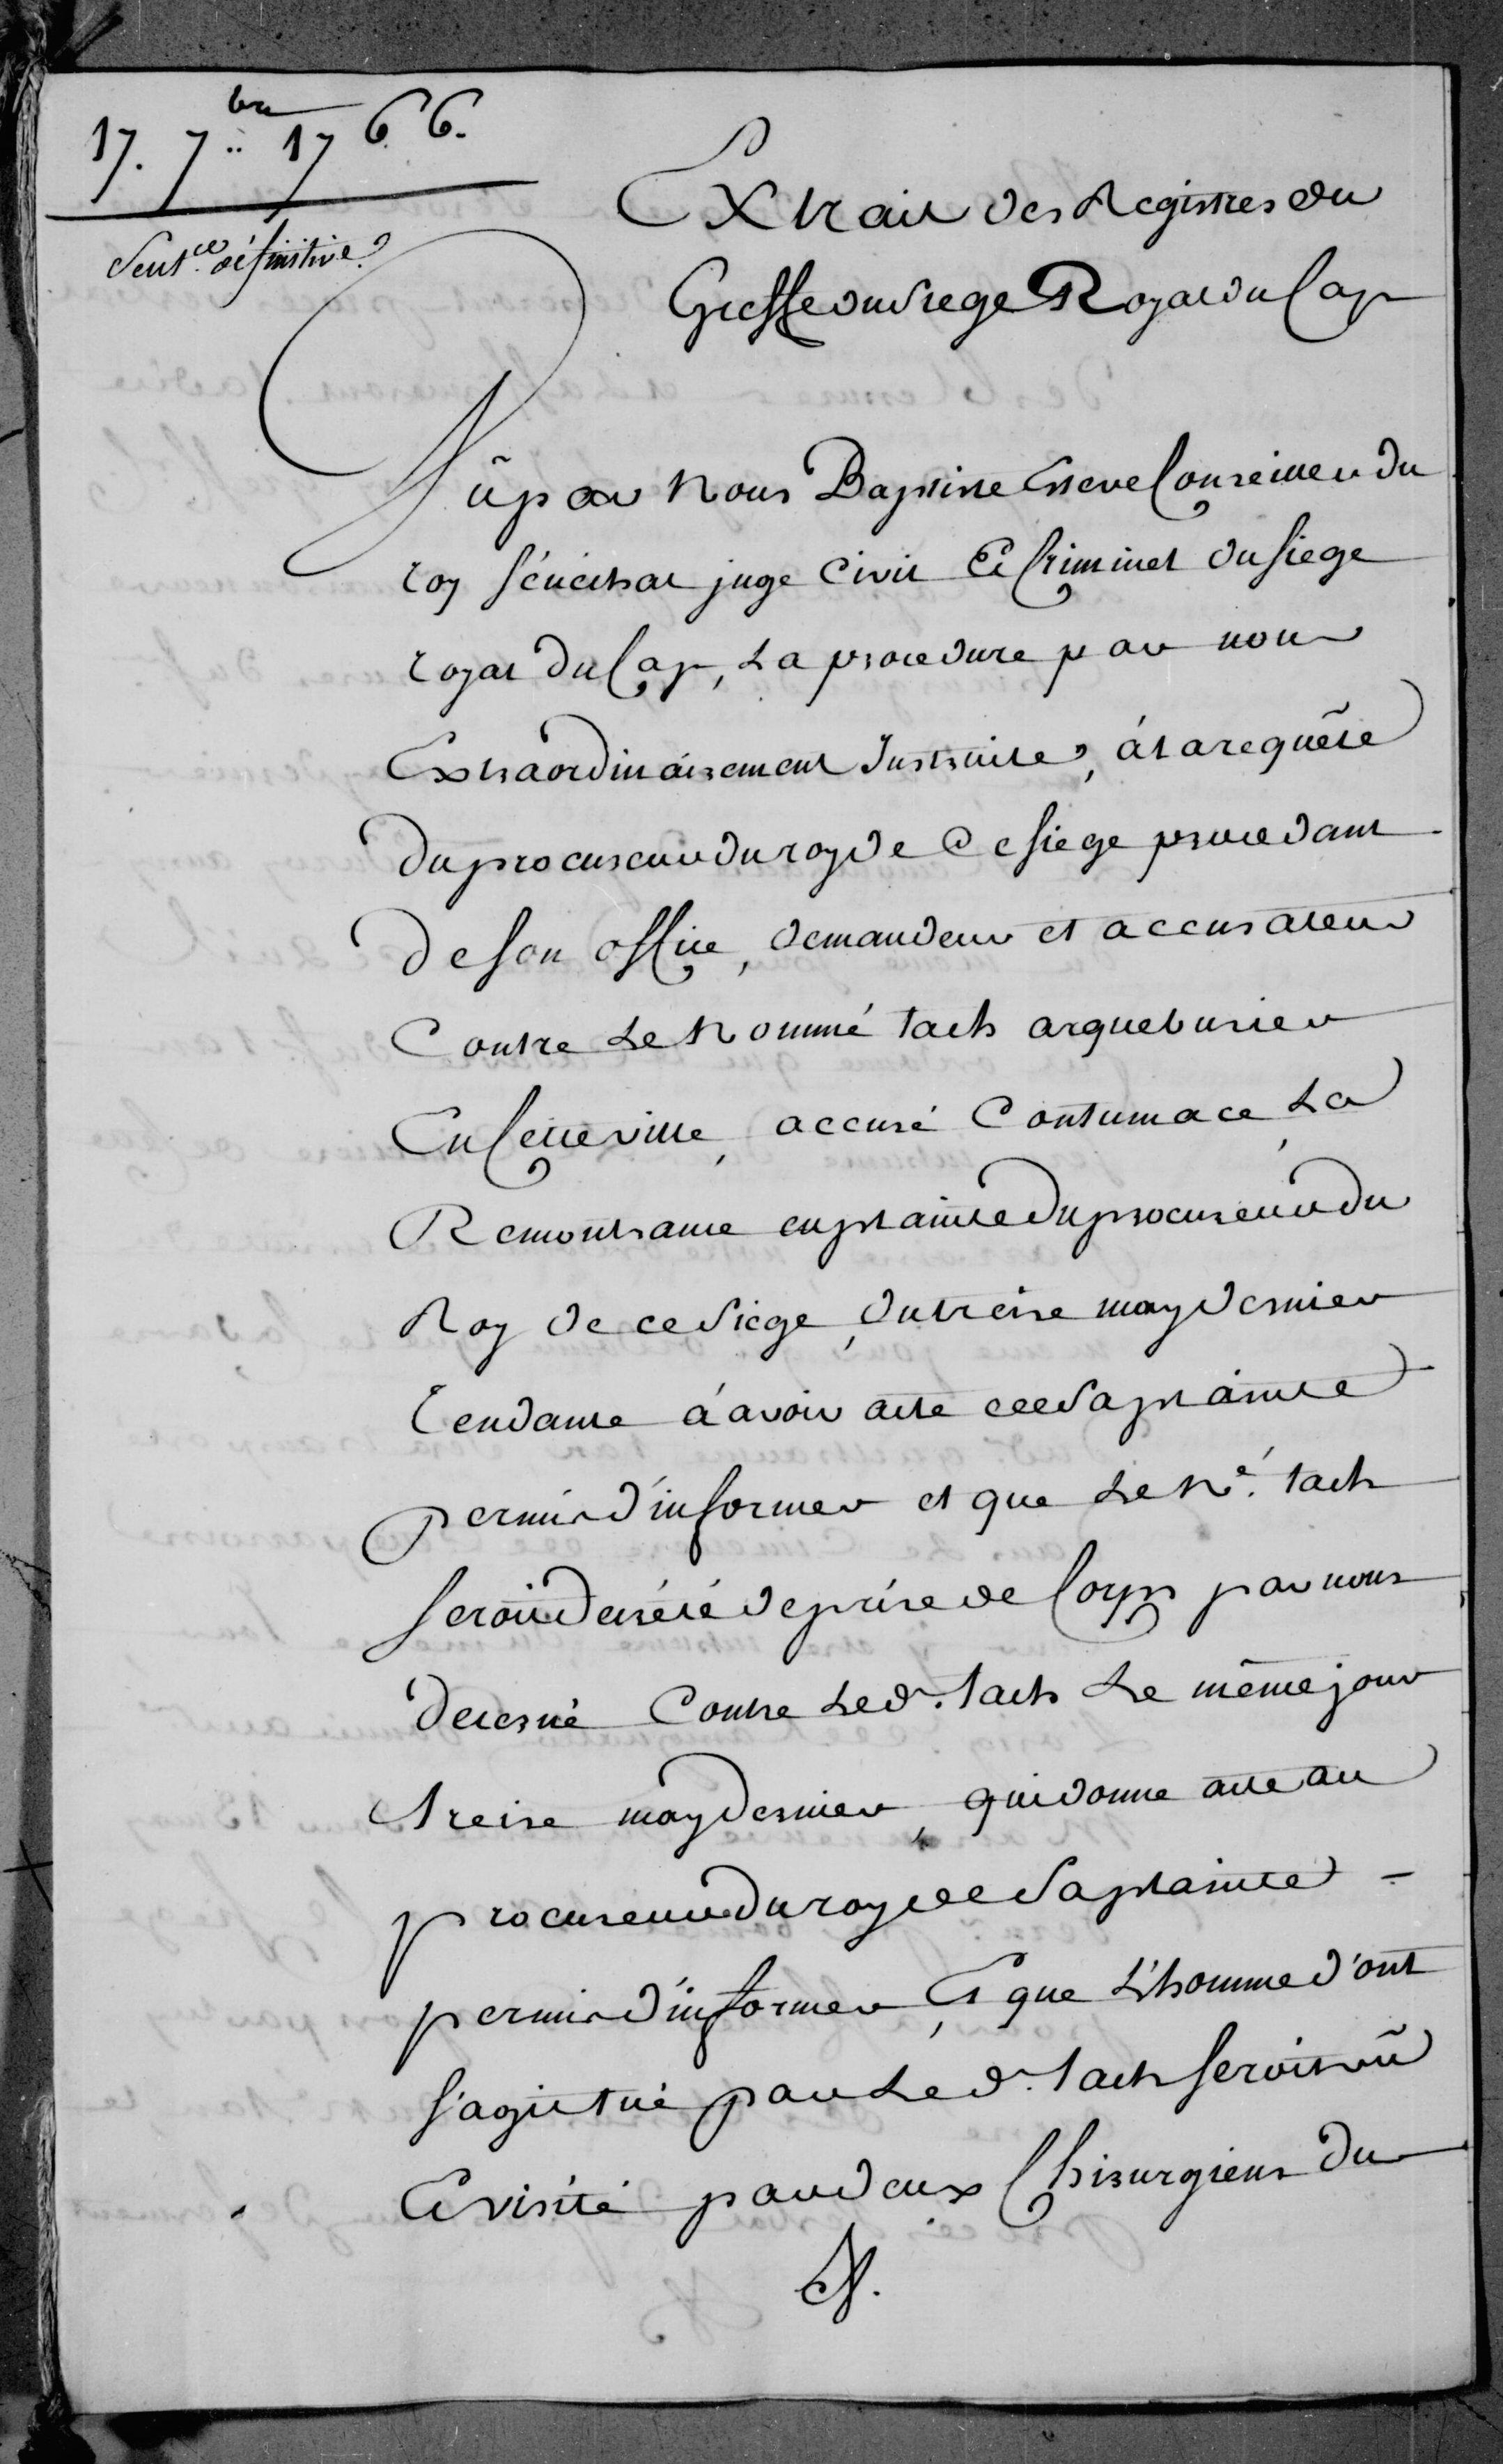 17. 7.bre 1766.
Sent.ce définitive
Extrait des Registres du
Greffe du siege Royal du Cap
Vû par Nous Baptiste Esteve Conseiller du
roy sénéchal juge Civil Et Criminel du siege
royal du Cap, La procedure par nous
Extraordinairement Instruite, à la requête
du procureur du roy de Ce siege procedant
de son office, demandeur et accusateur
Contre Le Nommé tach arquebusier
En Cette ville, accusé Contumace, La
Remontrance en plainte du procureur du
Roy de ce siege, du treise may dernier
tendante à avoir acte de sa plainte
permis d'informer et que Le N.é tach
seroit decrété de prise de Corps par nous
decerné Contre Led. tach Le même jour
treise may dernier, qui donne acte au
procureur du roy de sa plainte -
permis d'informer, Et que L'homme d'ont
s'agit tué par Led. tach seroit vû
Et visité par deux Chirurgiens du